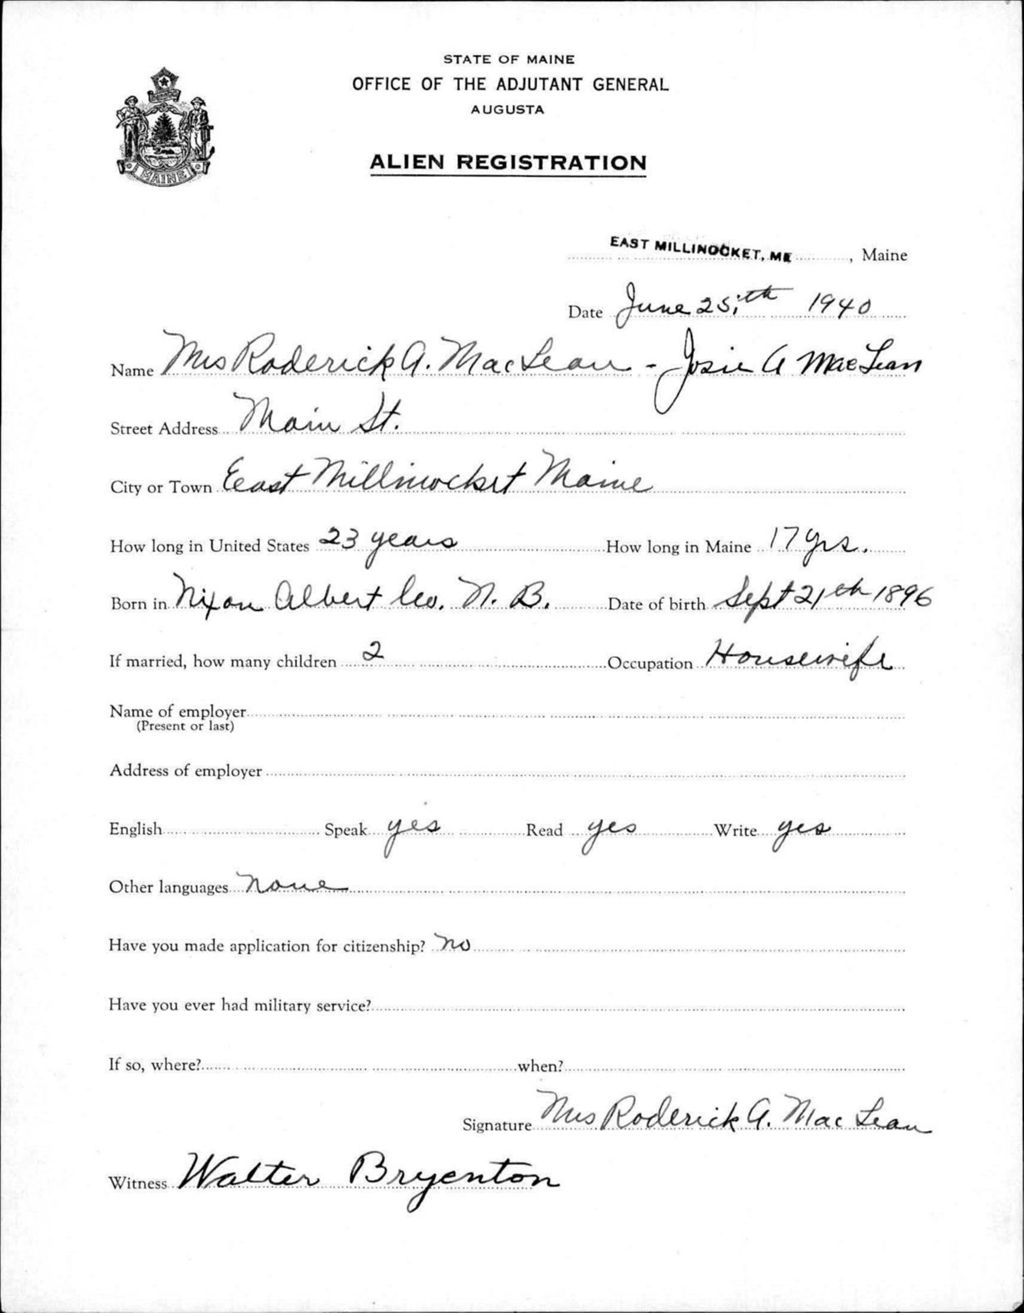 STATE OF MAINE
OFFICE OF THE ADJUTANT GENERAL
AUGUSTA
ALIEN REGISTRATION
MAINE
EAST MILLINOCKET, ME , Maine
Date June 25,th 1940
Name Mrs Roderick A. MacLean - Josie A MacLean
Street Address Main St.
City or Town East Millinocket Maine
How long in United States 23 years How long in Maine 17 yrs.
Born in Nixon Albert Co. N. B. Date of birth Sept 21th 1896
If married, how many children 2 Occupation Housewife
Name of employer
(Present or last)
Address of employer
English Speak yes Read yes Write yes
Other languages none
Have you made application for citizenship? no
Have you ever had military service?
If so, where? when?
Signature Mrs Roderick A. MacLean
Witness Walter Bryenton